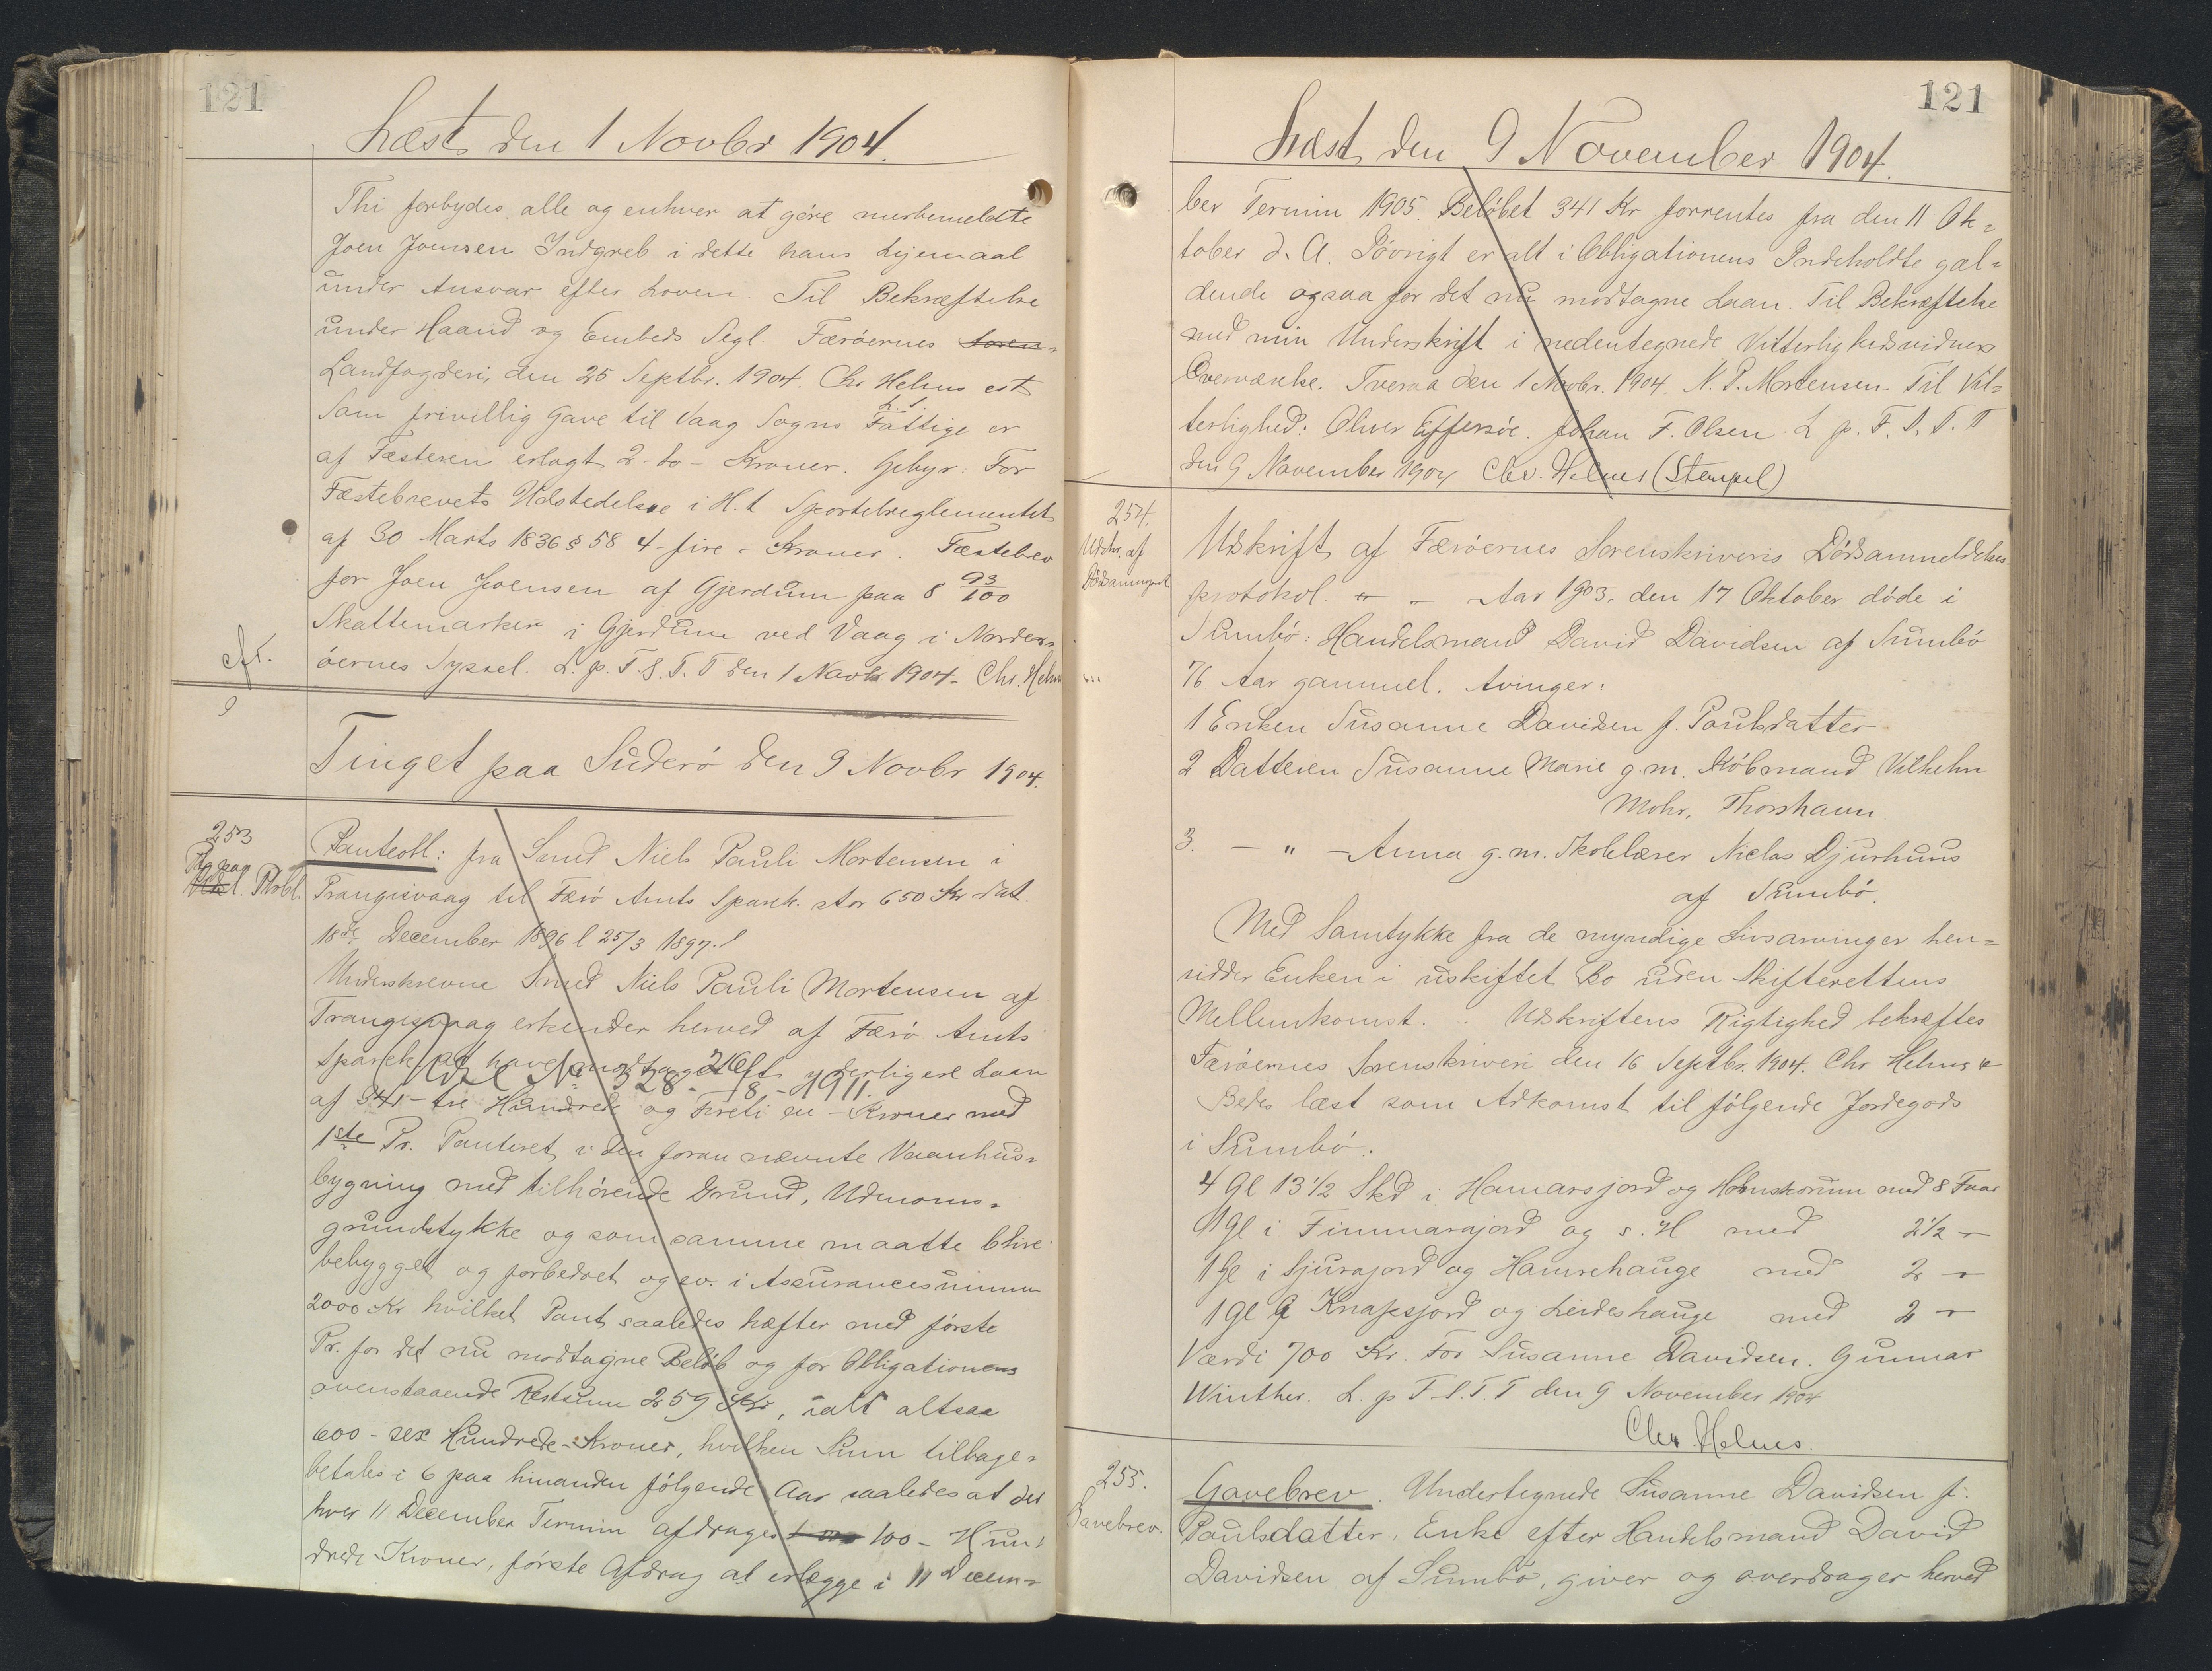 121
Læst den 1 Novbr 1904.
Thi forbydes alle og enhver at göre merbemeldte
Joen Joensen Indgreb i dette hans Lejemaal
under Ansvar efter Loven. Til Bekræftelse
under Haand og Embeds Segl. Færöernes Soren-
Landfogderi, den 25 Septbr. 1904. Chr Helms cst
L.S.
Som frivillig Gave til Vaag Sogns Fattige er
af Fæsteren erlagt 2 - to - Kroner. Gebyr: For
Fæstebrevets Udstedelse i H. t Sportelreglementet
af 30 Marts 1836 § 58 4 - fire - Kroner. Fæstebrev
for Joen Joensen af Gjerdum paa 8 93/100
Skattemarker i Gjerdum ved Vaag i Norder-
öernes Syssel. L. p. F. S. T. T den 1 Novbr 1904. Chr. Helms
Tinget paa Suderö den 9 Novbr 1904.
253
Pteobl.
Panteobl: fra Smed Niels Pauli Mortensen i
Trangisvaag til Færö Amts Sparek. stor 650 Kr dat.
18de December 1896 l 25/3 1897.
Underskrevne Smed Niels Pauli Mortensen af
Trangisvaag erkender herved af Færö Amts
Sparek. at have modtaget yderligere Laan
Udsl No 328 - /8 - 1911.
af 341 - tre Hundrede og Firети en - Kroner med
1ste Pr. Panteret i den foran nævnte Vaanhus-
bygning med tilhörende Grund, Udmarks-
grundstykke og som samme maatte blive
bebygget og forbedret og ev. i Assurancesummen
2000 Kr hvilket Pant saaledes hæfter med förste
Pr. for det nu modtagne Belöb og for Obligationens
ovenstaaende Restsum 259 Kr, ialt altsaa
600 - sex Hundrede - Kroner, hvilken Sum tilbage-
betales i 6 paa hinanden fölgende Aar saaledes at der
hver 11 December Termin afdrages 100 - Hun-
drede - Kroner, förste Afdrag at erlægge i 11 Decem-
121
Læst den 9 November 1904.
ber Termin 1905. Belöbet 341 Kr forrentes fra den 11 Ok-
tober d. A. Iövrigt er alt i Obligationens Indeholdte gæl-
dende ogsaa for det nu modtagne Laan. Til Bekræftelse
med min Underskrift i nedentegnede Vitterlighedsvidners
Overværelse. Tveraa den 1 Novbr. 1904. N. P. Mortensen. Til Vit-
terlighed: Oliver Effersöe. Johan F. Olsen. L p. F. S. T. T
den 9 November 1904 Chr. Helms (Stempel)
254.
Udskr. af
Udskrift af Færöernes Sorenskriveris Dödsanmeldelses-
protokol. - - Aar 1903. den 17 Oktober döde i
Sumbö: Handelsmand David Davidsen af Sumbö
76 Aar gammel. Arvinger:
1 Enken Susanne Davidsen f. Poulsdatter
2 Datteren Susanne Marie g. m. Köbmand Vilhelm
Mohr, Thorshavn.
3. - " - Anna g. m. Skolelærer Niclas Djurhuus
af Sumbö.
Med Samtykke fra de myndige Livsarvinger hen-
sidder Enken i uskiftet Bo uden Skifterettens
Mellemkomst. - Udskriftens Rigtighed bekræftes
Færöernes Sorenskriveri den 16 Septbr. 1904. Chr Helms
Bedes læst som Adkomst til fölgende Jordegods
i Sumbö.
4 Gl 13 1/2 Skd i Hamarsjord og med 8 Faar
1 Gl i Fimmarajord og s. H med 2 1/2 -
1 Gl i Sjurajord og Hamrehauge med 2 -
1 Gl i Knapsjord og Leideshauge med 2 -
Værdi 700 Kr. For Susanne Davidsen. Gunnar
Winther. L. p F. S. T. T den 9 November 1904
Chr Helms.
255.
Gavebrev.
Gavebrev. Undertegnede Susanne Davidsen f.
Poulsdatter, Enke efter Handelsmand David
Davidsen af Sumbö, giver og overdrager herved